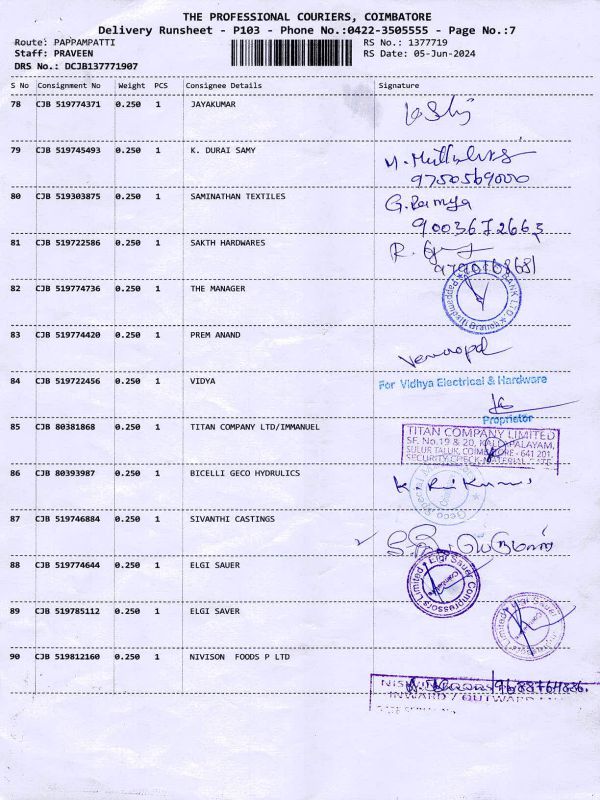 THE PROFESSIONAL COURIERS, COIMBATORE
Delivery Runsheet - P103 - Phone No.:0422-3505555 - Page No.:7
Route: PAPPAMPATTI RS No.: 1377719
Staff: PRAVEEN RS Date: 05-Jun-2024
DRS No.: DCJB137771907
S No Consignment No Weight PCS Consignee Details Signature
78 CJB 519774371 0.250 1 JAYAKUMAR
79 CJB 519745493 0.250 1 K. DURAI SAMY
9750569000
80 CJB 519303875 0.250 1 SAMINATHAN TEXTILES G. Ramya
9003672663
81 CJB 519722586 0.250 1 SAKTH HARDWARES
82 CJB 519774736 0.250 1 THE MANAGER BANK LTD. Pappampatti Branch
83 CJB 519774420 0.250 1 PREM ANAND
84 CJB 519722456 0.250 1 VIDYA For Vidhya Electrical & Hardware
Proprietor
85 CJB 80381868 0.250 1 TITAN COMPANY LTD/IMMANUEL TITAN COMPANY LIMITED
SF. No.19 & 20,
SULUR TALUK, COIMBATORE - 641 201.
86 CJB 80393987 0.250 1 BICELLI GECO HYDRULICS
87 CJB 519746884 0.250 1 SIVANTHI CASTINGS
88 CJB 519774644 0.250 1 ELGI SAUER Elgi Sauer Compressors Limited
89 CJB 519785112 0.250 1 ELGI SAVER Elgi Sauer Limited
90 CJB 519812160 0.250 1 NIVISON FOODS P LTD 9688764886
INWARD / OUTWARD